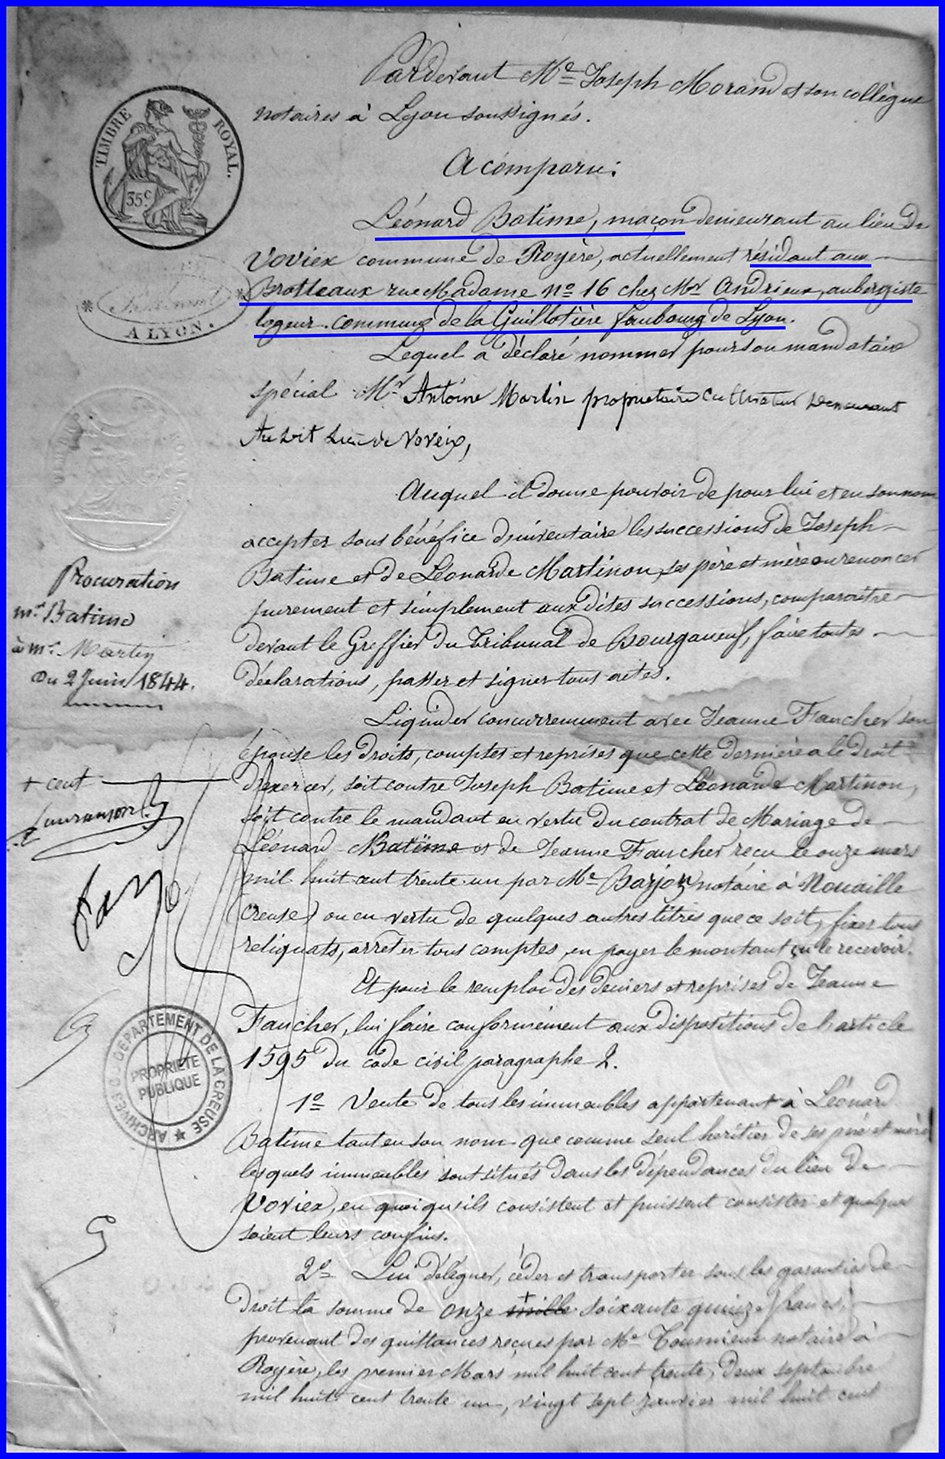 Pardevant Me Joseph Morand et son collègue
notaires à Lyon soussignés.
TIMBRE ROYAL.
35c
A comparu:
Léonard Batime, maçon demeurant au lieu de
Voviex commune de Royère, actuellement résidant aux
Brotteaux rue Madame no 16 chez Mr Andrieux, aubergiste
logeur. commune de la Guillotière faubourg de Lyon.
A LYON.
Lequel a déclaré nommer pour son mandataire
spécial Mr Antoine Martin propriétaire cultivateur demeurant
Au dit lieu de Voveix,
Auquel il donne pouvoir de pour lui et en son nom
accepter sous bénéfice d'inventaire les successions de Joseph
Batime et de Léonarde Martinon, ses père et mère ou renoncer
purement et simplement aux dites successions, comparaître
devant le Greffier du Tribunal de Bourganeuf, faire toutes
déclarations, passer et signer tous actes.
Procuration
mr Batime
à mr Martin
Du 2 Juin 1844.
Liquider concurremment avec Jeanne Faucher son
épouse les droits, comptes et reprises que cette dernière a le droit
d'exercer, soit contre Joseph Batime et Léonarde Martinon,
soit contre le mandant en vertu du contrat de Mariage de
Léonard Batime et de Jeanne Faucher reçu le onze mars
mil huit cent trente un par Me Bayon notaire à Nouaille
(Creuse) ou en vertu de quelques autres titres que ce soit, fixer tous
reliquats, arrêter tous comptes, en payer le montant ou le recevoir.
+ cent
Et pour le remploi des deniers et reprises de Jeanne
Faucher, lui faire conformément aux dispositions de l'article
1595 du code civil paragraphe 2.
ARCHIVES DU DÉPARTEMENT DE LA CREUSE
PROPRIÉTÉ PUBLIQUE
1o Vente de tous les immeubles appartenant à Léonard
Batime tant en son nom que comme seul héritier de ses père et mère
lesquels immeubles sont situés dans les dépendances du lieu de
Voviex, en quoi qu'ils consistent et puissent consister et quelques
soient leurs confins.
2o Lui déléguer, céder et transporter sous les garanties de
droit la somme de onze + mille soixante quinze francs,
provenant des quittances reçues par Me Toumieux notaire à
Royère, les premier Mars mil huit cent trente, deux septembre
mil huit cent trente un, vingt sept janvier mil huit cent